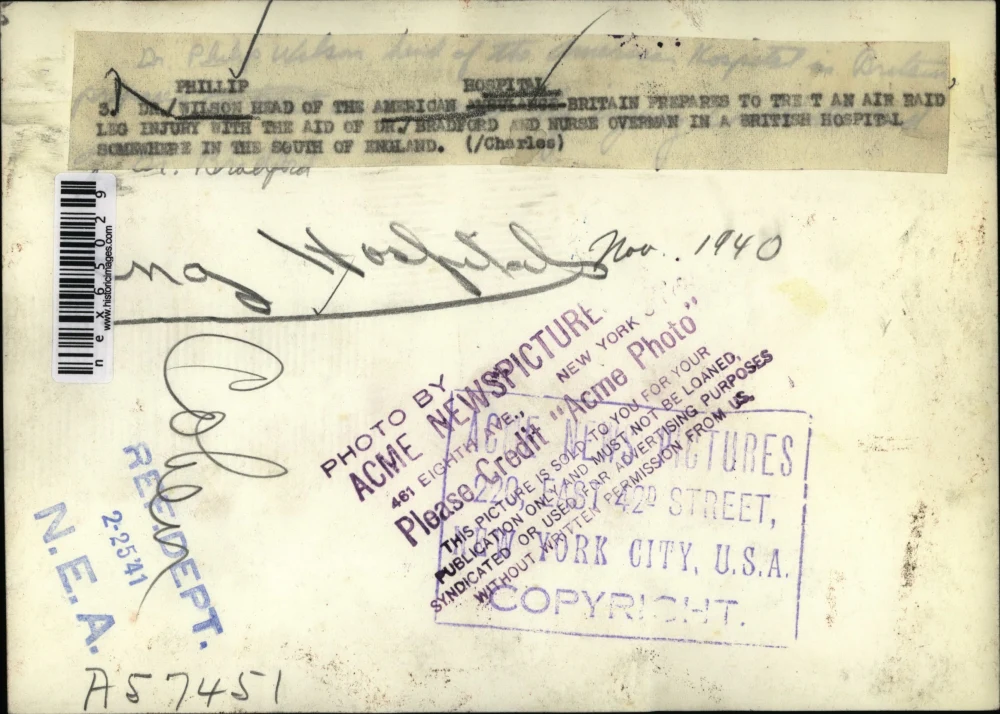 Dr. Philip Wilson head of the American Hospital in Britain
PHILLIP HOSPITAL
3. DR. WILSON HEAD OF THE AMERICAN AMBULANCE BRITAIN PREPARES TO TREAT AN AIR RAID
LEG INJURY WITH THE AID OF DR. BRADFORD AND NURSE OVERMAN IN A BRITISH HOSPITAL
SOMEWHERE IN THE SOUTH OF ENGLAND. (/Charles)
Dr. Bradford
Eng Hospitals Nov. 1940
nex65029
www.historicimages.com
PHOTO BY
ACME NEWSPICTURE
461 EIGHTH AVE., NEW YORK
Please Credit "Acme Photo"
THIS PICTURE IS SOLD TO YOU FOR YOUR
PUBLICATION ONLY AND MUST NOT BE LOANED,
SYNDICATED OR USED FOR ADVERTISING PURPOSES
WITHOUT WRITTEN PERMISSION FROM US.
ACME NEWSPICTURES
220 EAST 42D STREET,
NEW YORK CITY, U.S.A.
COPYRIGHT.
REF. DEPT.
2-25'41
N.E.A.
A57451